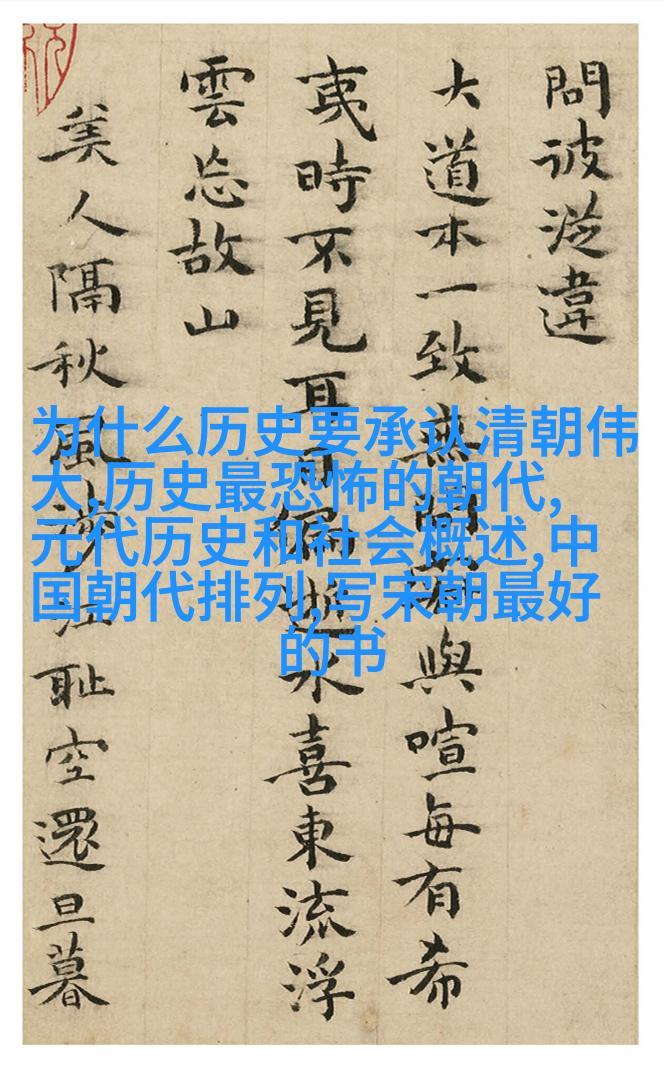 問彼從違
大道本一致無與喧每有希
夷時不見耳目偏逝水喜東流浮
雲忘故山
美人隔秋風涉江耻空還旦暮
为什么历史要承认清朝伟
大,历史最恐怖的朝代,
元代历史和社会概述,中
国朝代排列,写宋朝最好
的书